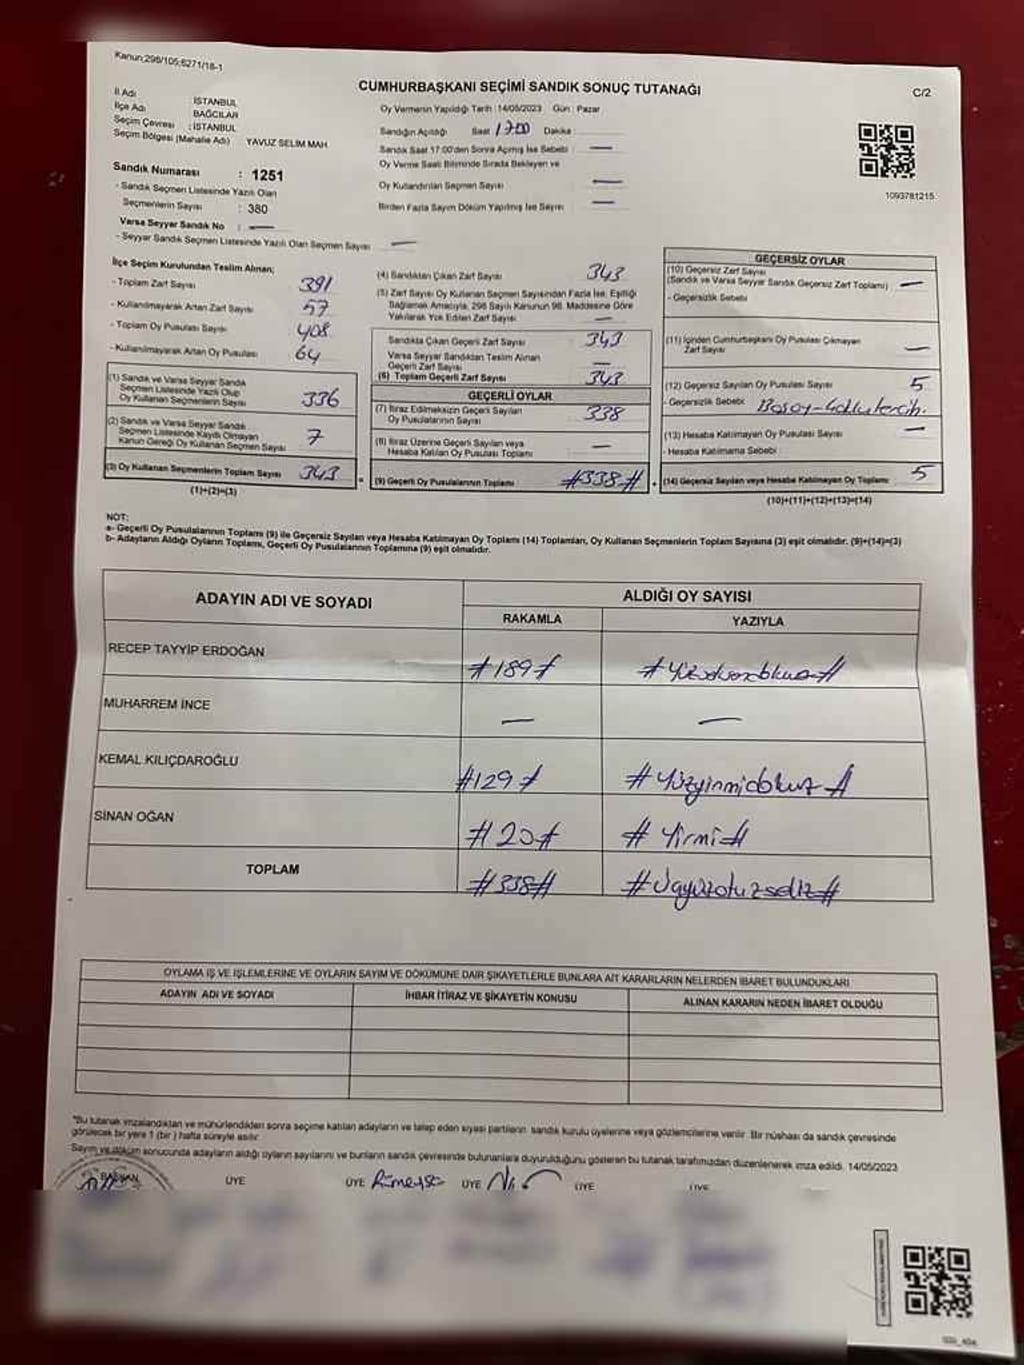 Kanun;298/105;6271/18-1
CUMHURBAŞKANI SEÇİMİ SANDIK SONUÇ TUTANAĞI
C/2
İl Adı : İSTANBUL
İlçe Adı : BAĞCILAR
Seçim Çevresi : İSTANBUL
Seçim Bölgesi (Mahalle Adı) YAVUZ SELİM MAH.
Sandık Numarası : 1251
- Sandık Seçmen Listesinde Yazılı Olan
Seçmenlerin Sayısı : 380
Varsa Seyyar Sandık No : —
- Seyyar Sandık Seçmen Listesinde Yazılı Olan Seçmen Sayısı —
Oy Vermenin Yapıldığı Tarih : 14/05/2023 Gün : Pazar
Sandığın Açıldığı Saat 17:00 Dakika :
Sandık Saat 17:00'den Sonra Açılmış İse Sebebi : —
Oy Verme Saati Bitiminde Sırada Bekleyen ve
Oy Kullandırılan Seçmen Sayısı —
Birden Fazla Sayım Döküm Yapılmış İse Sayısı —
1093781215
İlçe Seçim Kurulundan Teslim Alınan;
- Toplam Zarf Sayısı 391
- Kullanılmayarak Artan Zarf Sayısı 57
- Toplam Oy Pusulası Sayısı 408
- Kullanılmayarak Artan Oy Pusulası 64
(1) Sandık ve Varsa Seyyar Sandık
Seçmen Listesinde Yazılı Olup
Oy Kullanan Seçmenlerin Sayısı 336
(2) Sandık ve Varsa Seyyar Sandık
Seçmen Listesinde Kayıtlı Olmayan
Kanun Gereği Oy Kullanan Seçmen Sayısı 7
(3) Oy Kullanan Seçmenlerin Toplam Sayısı 343
(1)+(2)=(3)
(4) Sandıktan Çıkan Zarf Sayısı 343
(5) Zarf Sayısı Oy Kullanan Seçmen Sayısından Fazla İse; Eşitliği
Sağlamak Amacıyla, 298 Sayılı Kanunun 98. Maddesine Göre
Yakılarak Yok Edilen Zarf Sayısı —
Sandıkta Çıkan Geçerli Zarf Sayısı 343
Varsa Seyyar Sandıktan Teslim Alınan
Geçerli Zarf Sayısı —
(6) Toplam Geçerli Zarf Sayısı 343
GEÇERLİ OYLAR
(7) İtiraz Edilmeksizin Geçerli Sayılan
Oy Pusulalarının Sayısı 338
(8) İtiraz Üzerine Geçerli Sayılan veya
Hesaba Katılan Oy Pusulası Toplamı —
(9) Geçerli Oy Pusulalarının Toplamı #338#
GEÇERSİZ OYLAR
(10) Geçersiz Zarf Sayısı
(Sandık ve Varsa Seyyar Sandık Geçersiz Zarf Toplamı) —
- Geçersizlik Sebebi
(11) İçinden Cumhurbaşkanı Oy Pusulası Çıkmayan
Zarf Sayısı —
(12) Geçersiz Sayılan Oy Pusulası Sayısı 5
- Geçersizlik Sebebi
(13) Hesaba Katılmayan Oy Pusulası Sayısı —
- Hesaba Katılmama Sebebi
(14) Geçersiz Sayılan veya Hesaba Katılmayan Oy Toplamı 5
(10)+(11)+(12)+(13)=(14)
NOT:
a- Geçerli Oy Pusulalarının Toplamı (9) ile Geçersiz Sayılan veya Hesaba Katılmayan Oy Toplamı (14) Toplamları, Oy Kullanan Seçmenlerin Toplam Sayısına (3) eşit olmalıdır. (9)+(14)=(3)
b- Adayların Aldığı Oyların Toplamı, Geçerli Oy Pusulalarının Toplamına (9) eşit olmalıdır.
ADAYIN ADI VE SOYADI
ALDIĞI OY SAYISI
RAKAMLA YAZIYLA
RECEP TAYYİP ERDOĞAN #189# #Yüzseksendokuz#
MUHARREM İNCE — —
KEMAL KILIÇDAROĞLU #129# #Yüzyirmidokuz#
SİNAN OĞAN #20# #Yirmi#
TOPLAM #338# #Üçyüzotuzsekiz#
OYLAMA İŞ VE İŞLEMLERİNE VE OYLARIN SAYIM VE DÖKÜMÜNE DAİR ŞİKAYETLERLE BUNLARA AİT KARARLARIN NELERDEN İBARET BULUNDUKLARI
ADAYIN ADI VE SOYADI İHBAR İTİRAZ VE ŞİKAYETİN KONUSU ALINAN KARARIN NEDEN İBARET OLDUĞU
*Bu tutanak imzalandıktan ve mühürlendikten sonra seçime katılan adayların ve talep eden siyasi partilerin sandık kurulu üyelerine veya gözlemcilerine verilir. Bir nüshası da sandık çevresinde
görülecek bir yere 1 (bir) hafta süreyle asılır.
Sayım ve döküm sonucunda adayların aldığı oyların sayılarını ve bunların sandık çevresinde bulunanlara duyurulduğunu gösteren bu tutanak tarafımızdan düzenlenerek imza edildi. 14/05/2023
BAŞKAN ÜYE ÜYE ÜYE ÜYE ÜYE